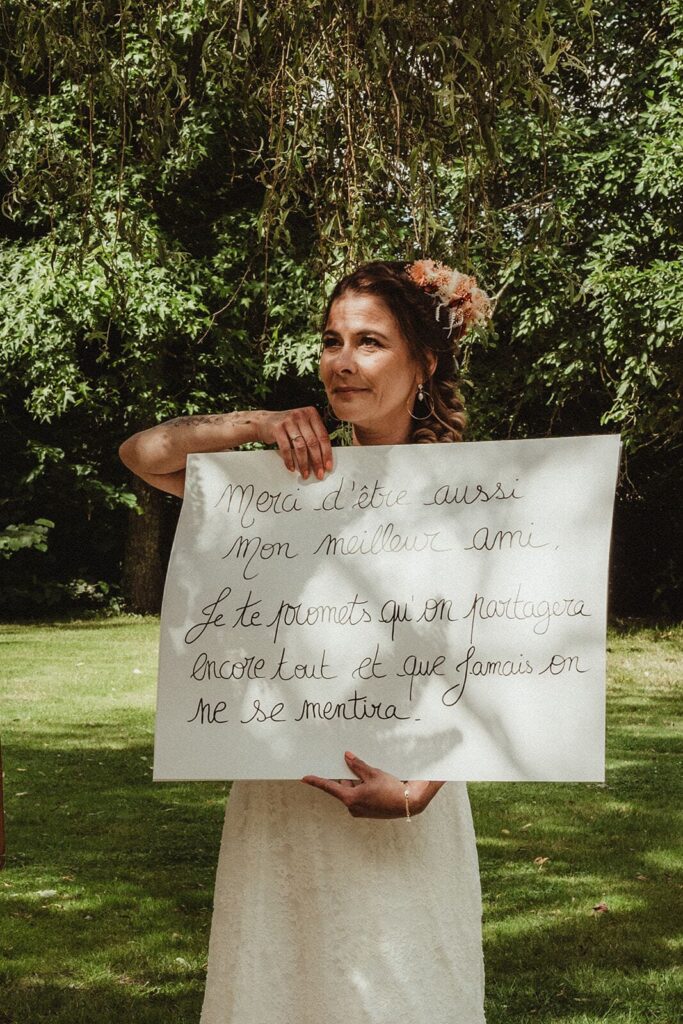 Merci d'être aussi
mon meilleur ami.
Je te promets qu'on partagera
encore tout et que jamais on
ne se mentira.